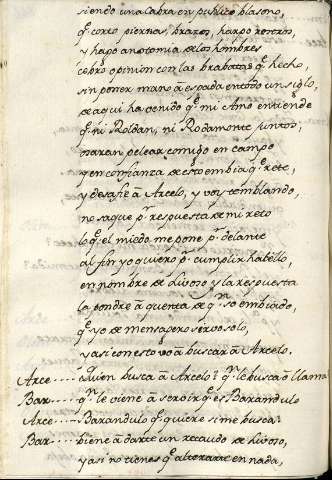 siendo una cabra en
q̃ corto piernas, braços, harpo rostros,
y hago anotomia de los hombres
cobro opinion con las brabatas q̃ hecho,
sin poner mano a espada en todo un siglo,
de aqui ha venido q̃ mi Amo entiende
q̃ ni Roldan, ni Rodamonte juntos,
osaran pelear comigo en campo
y en confianza de esto embia q̃ rete,
y desafie a Arcelo, y voy temblando,
no saque por respuesta de mi reto
lo q̃ el miedo me pone por delante
al fin yo quiero por cumplir hablallo,
en nombre de y la respuesta
la pondre a quenta de quien so embiado,
q̃ yo de mensagero sirvo solo,
y asi con esto vo a buscar a Arcelo.
Arce .... quien busca a Arcelo? quien le busca o llama
Bar .... quien le viene a servir q̃ es Barandulo
Arce .... Barandulo q̃ quiere si me busca?
Bar .... viene a darte un recaudo de
y asi no tienes q̃ alterarte en nada,